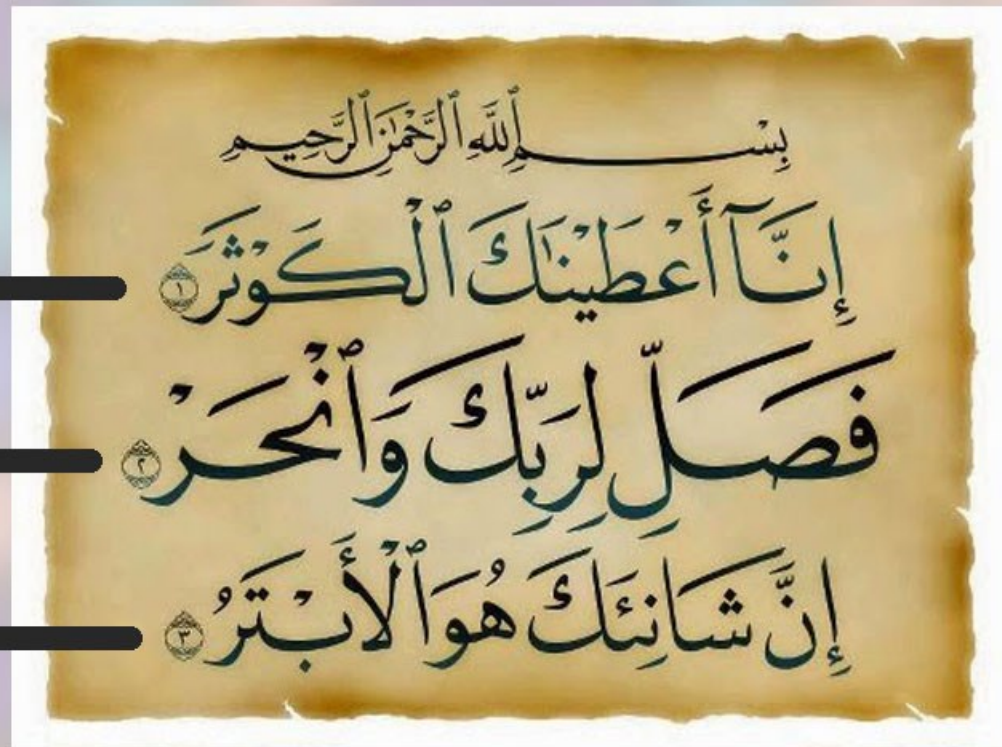 بِسْمِ ٱللَّهِ ٱلرَّحْمَٰنِ ٱلرَّحِيمِ
إِنَّآ أَعْطَيْنَٰكَ ٱلْكَوْثَرَ ١
فَصَلِّ لِرَبِّكَ وَٱنْحَرْ ٢
إِنَّ شَانِئَكَ هُوَ ٱلْأَبْتَرُ ٣